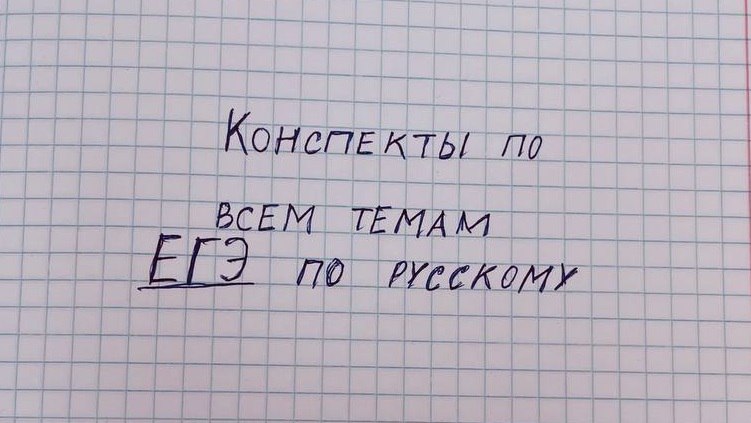 Конспекты по
всем темам
ЕГЭ по русскому